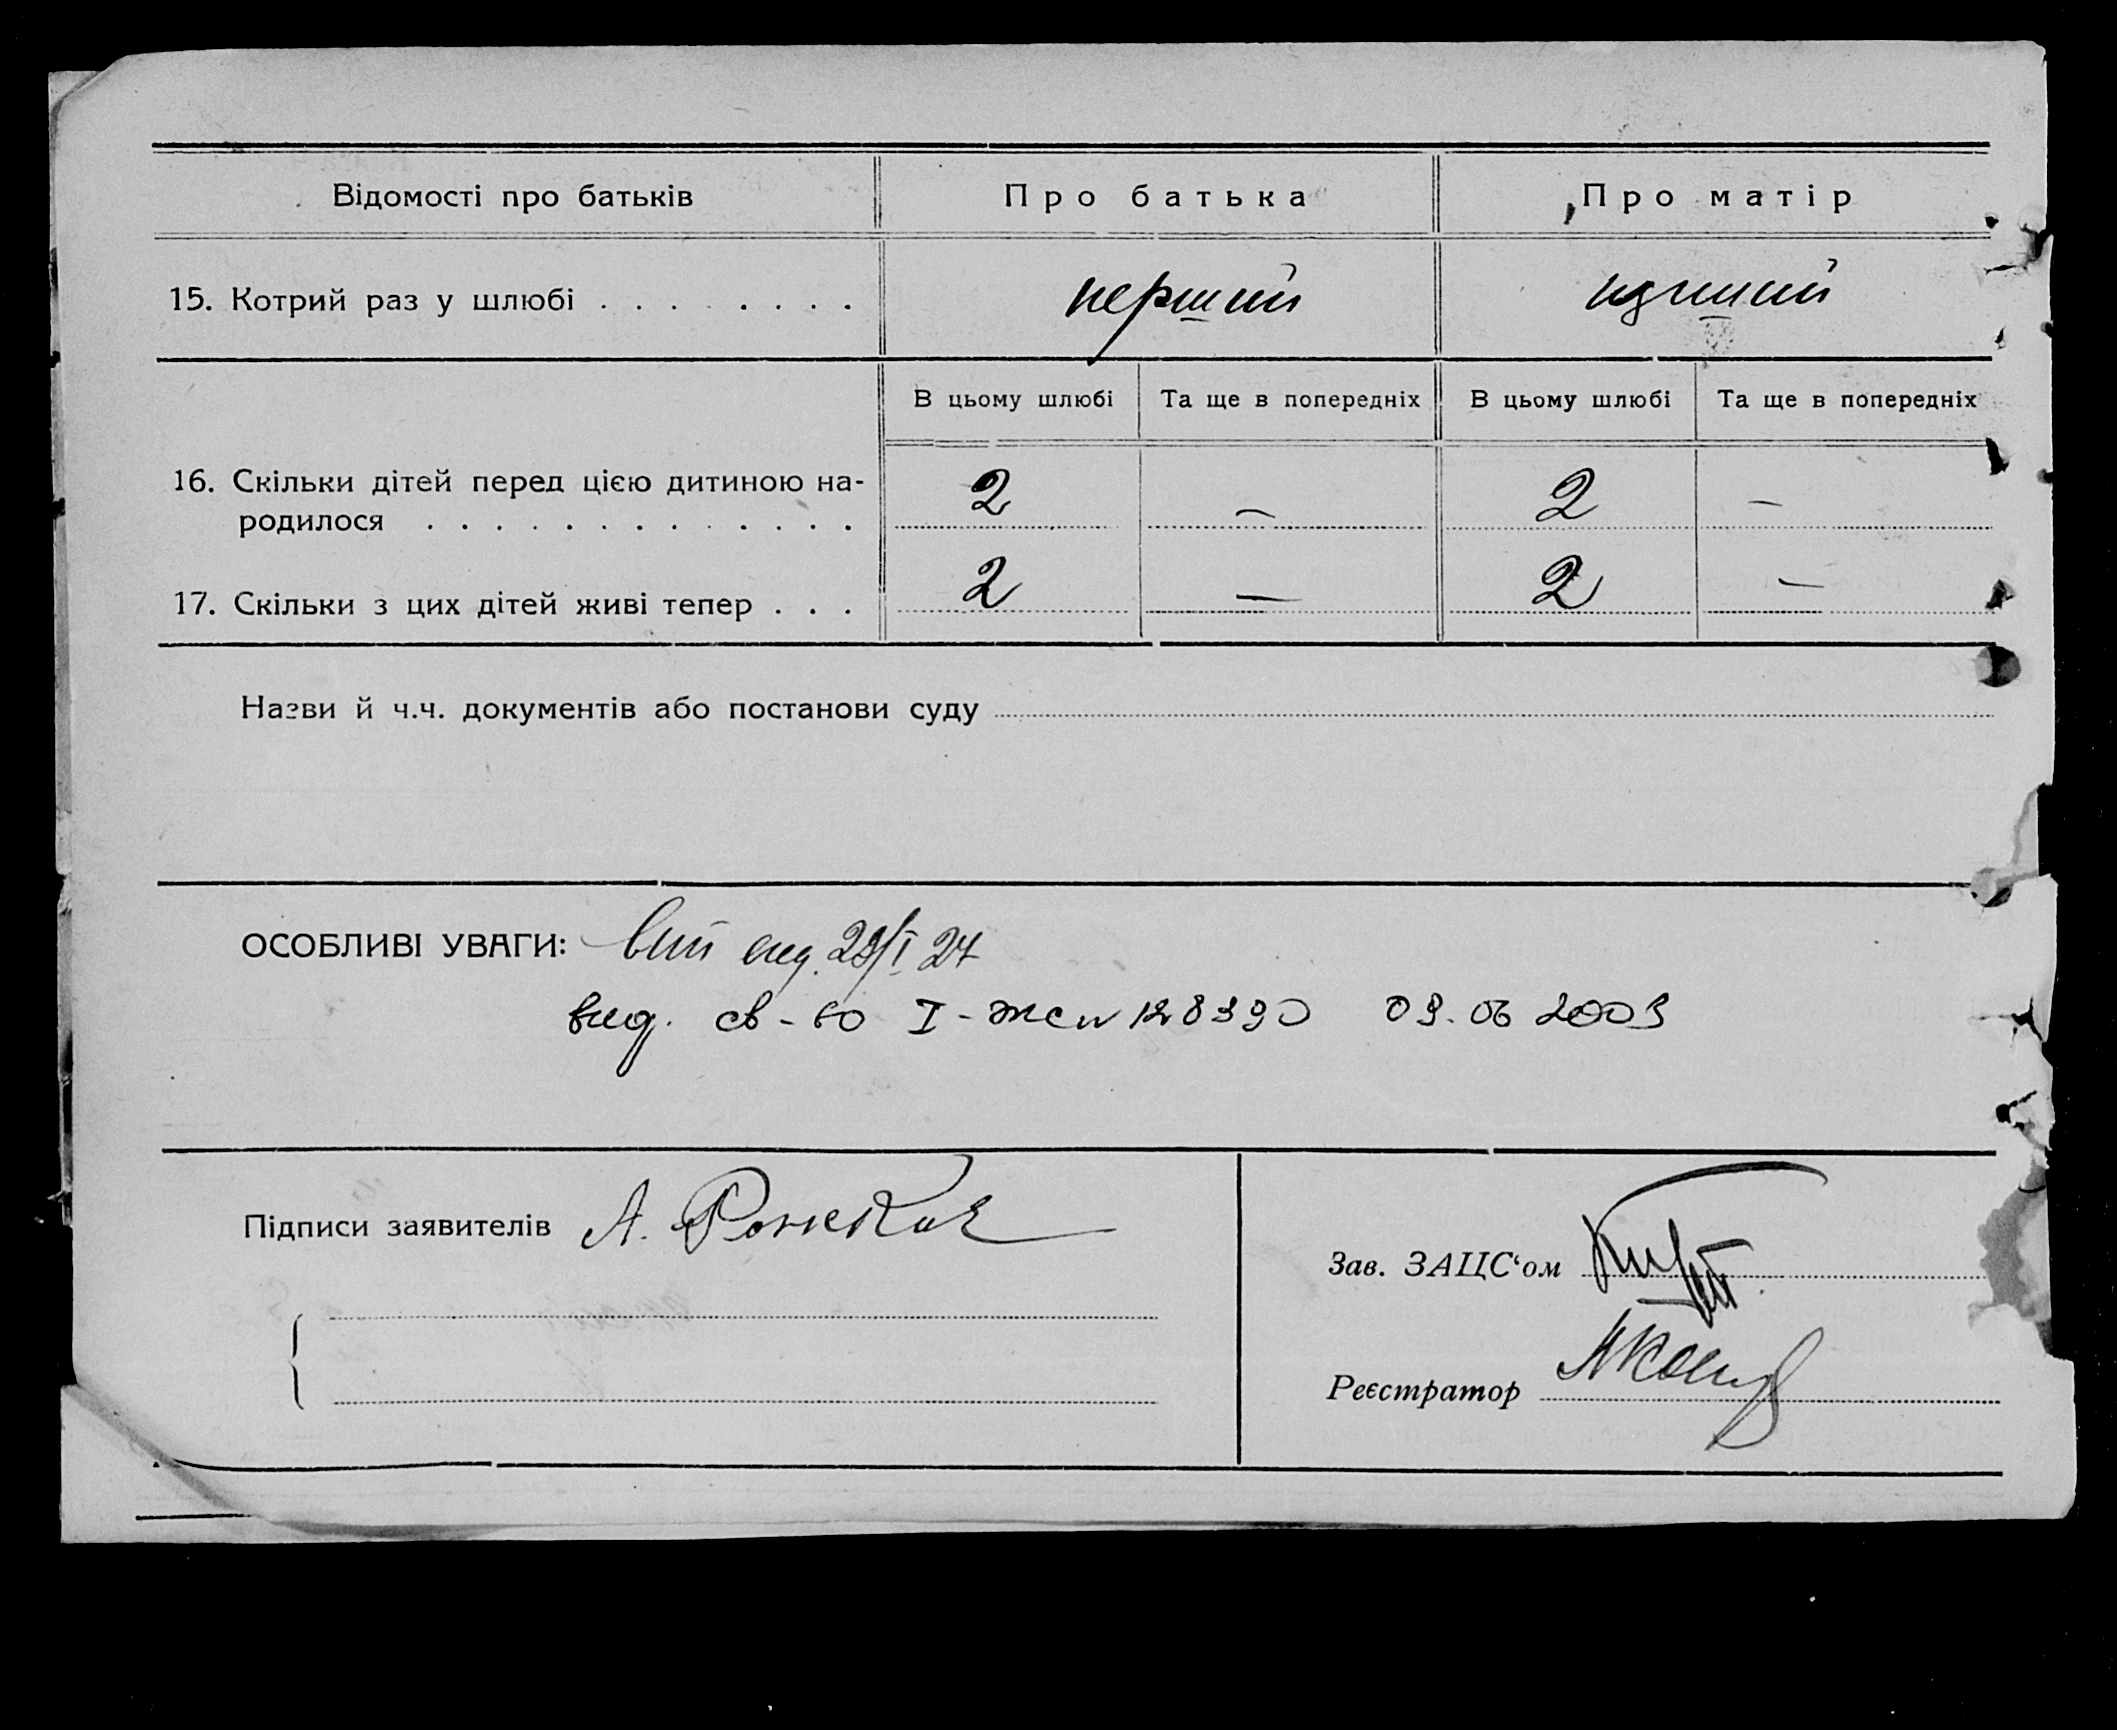 Відомості про батьків Про батька Про матір
15. Котрий раз у шлюбі . . . . . . . . перший перший
В цьому шлюбі Та ще в попередніх В цьому шлюбі Та ще в попередніх
16. Скільки дітей перед цією дитиною на-
родилося . . . . . . . . . . . . . 2 — 2 —
17. Скільки з цих дітей живі тепер . . . 2 — 2 —
Назви й ч.ч. документів або постанови суду
ОСОБЛИВІ УВАГИ: вид. 28/I 27
вид. св-во I-жс № 128390 09.06 2003
Підписи заявителів А.
Зав. ЗАЦС‘ом
Реєстратор